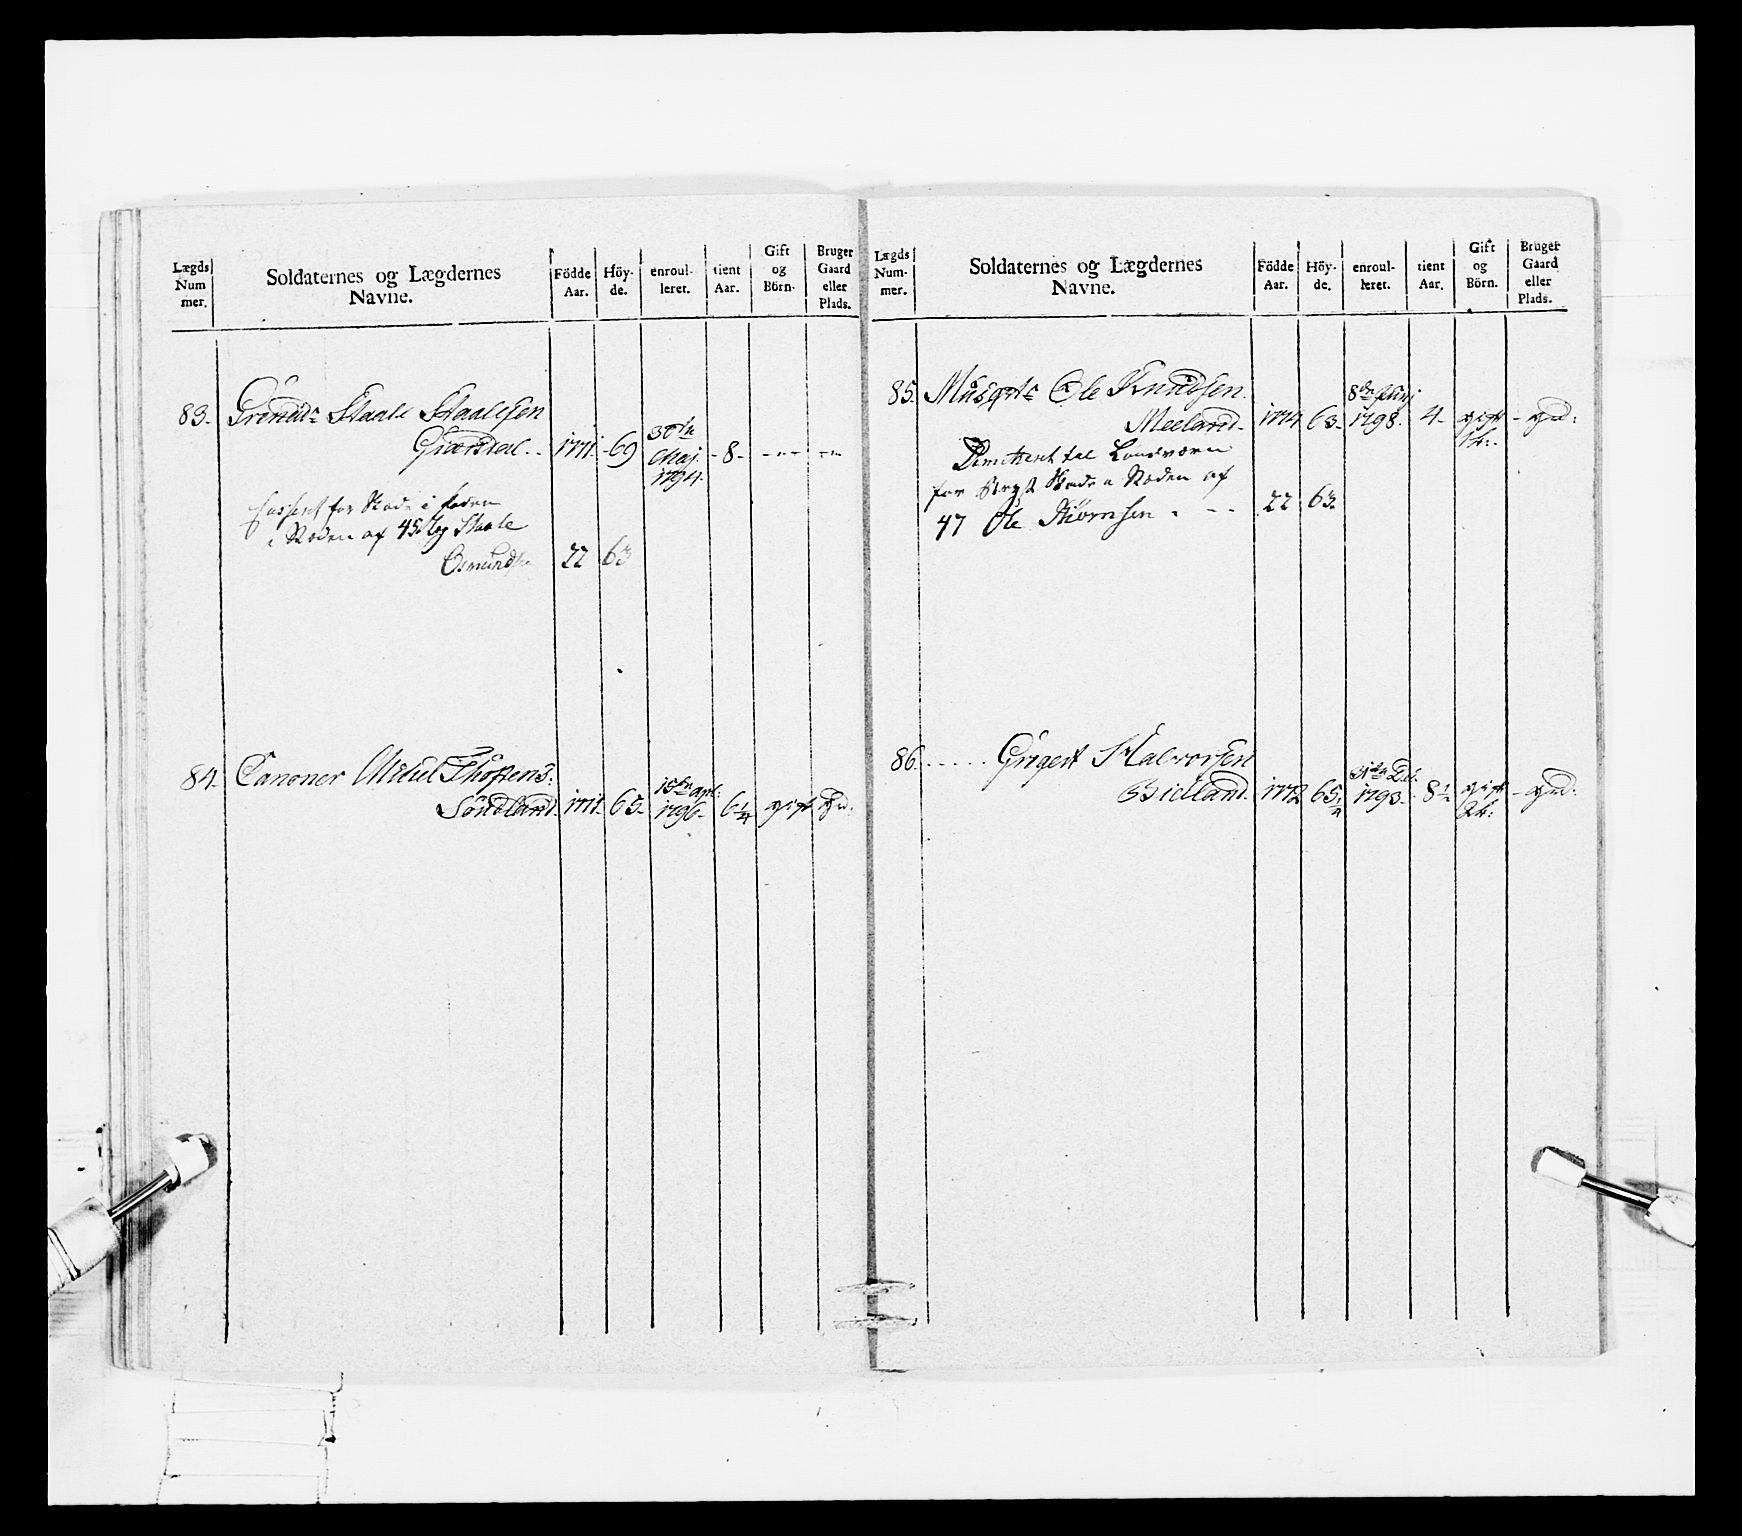 Lægds Num mer.
Soldaternes og Lægdernes Navne.
Födde Aar.
Höy- de.
enroul- leret.
tient Aar.
Gift og Börn.
Bruger Gaard eller Plads.
83. Grenadr Staale Staalesen
Giærstal. - 1771. - 69 30te Maj 1794. - 8 - - - - - -
Casseret for Skade i foden
i Roden af 45 Leg Staale
Osmunds 22 63
84. Canoner Mikel Thostens:
Söndland. 1771. 65. 18de apl: 1796. 6 1/4 gift gd:
Lægds Num- mer.
Soldaternes og Lægdernes Navne.
Födde Aar.
Höy- de.
enroul- leret.
tient Aar.
Gift og Börn.
Bruger Gaard eller Plads.
85. Musqtr Ole Knudsen.
Meeland. 1774 63. 8de Junj 1798. 4. gift 1b: - gd:
Dimittent til Landværn
for Skade Roden af
47 Ole Biørnsen . - - 22 63.
86. . . . . . Gregert Halvorsen
Bieland. 1772 65 1/4 31te Dec: 1793. 8 1/2 gift 2b: - gd: